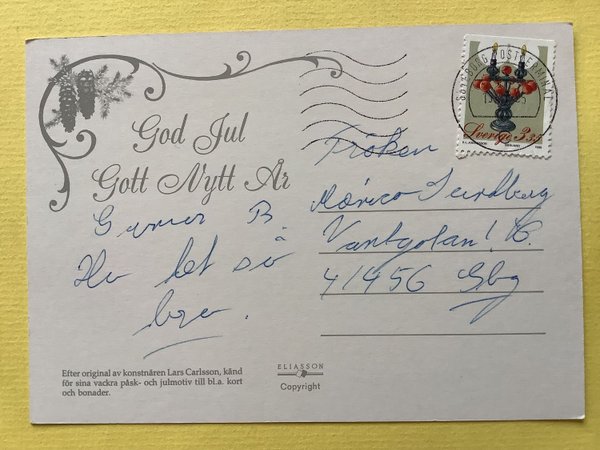 God Jul
Gott Nytt År
Gunnar B.
Ha det så
bra.
Fröken
Sundberg
41456 Gbg
Sverige 3.35
GÖTEBORG POSTTERMINAL
Efter original av konstnären Lars Carlsson, känd
för sina vackra påsk- och julmotiv till bl.a. kort
och bonader.
ELIASSON
Copyright